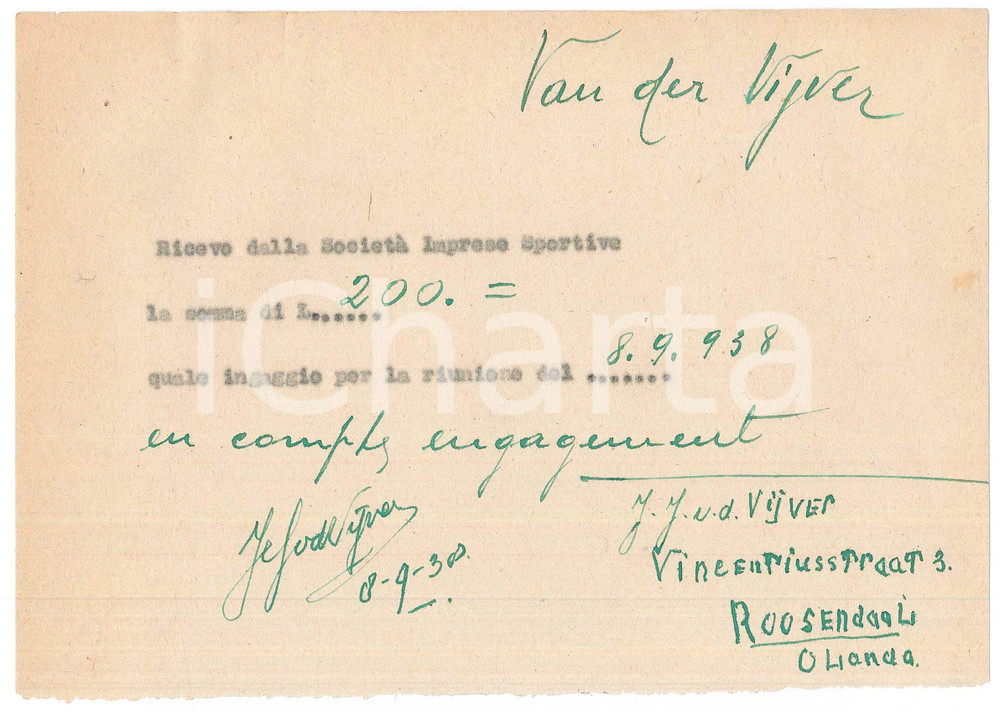 Van der Vijver
Ricevo dalla Società Imprese Sportive
la somma di L...... 200. =
quale ingaggio per la riunione del ....... 8.9.938
en compte engagement
J. J. v. d. Vijver
Vincentiusstraat 3.
Roosendaal
Olanda.
v d Vijver
8-9-38.
iCharta